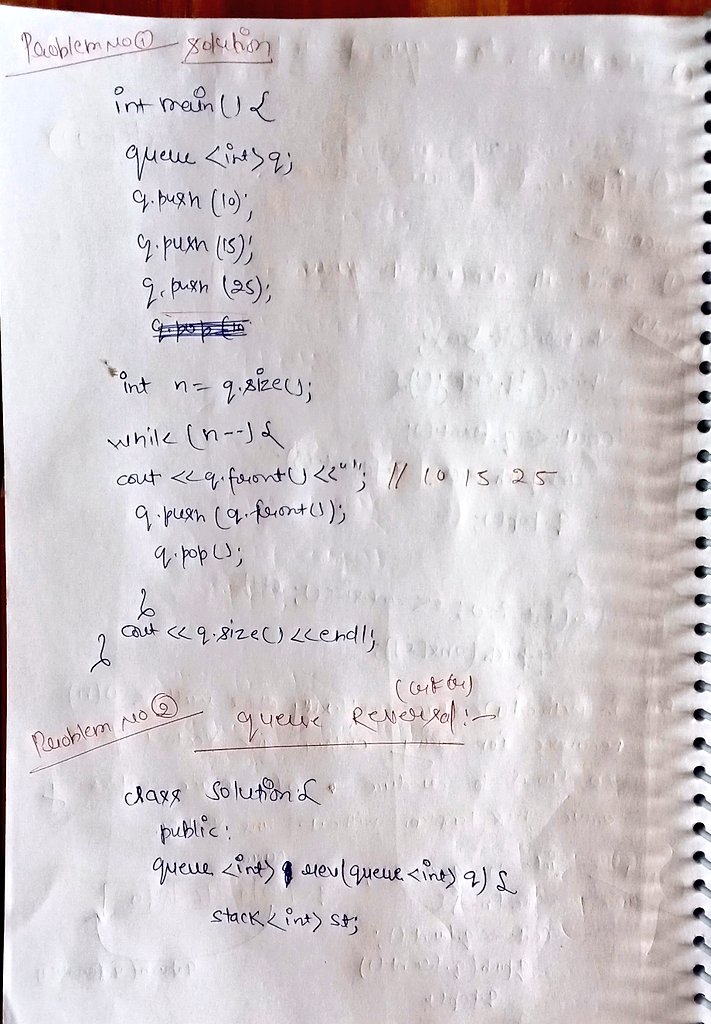 Problem No ① solution
int main () {
queue <int> q;
q.push (10);
q.push (15);
q.push (25);
int n = q.size();
while (n--) {
cout << q.front() << " "; // 10 15 25
q.push (q.front());
q.pop();
}
cout << q.size() << endl;
}
Problem No ② queue Reversal :-
class solution {
public:
queue <int> rev(queue <int> q) {
stack <int> st;